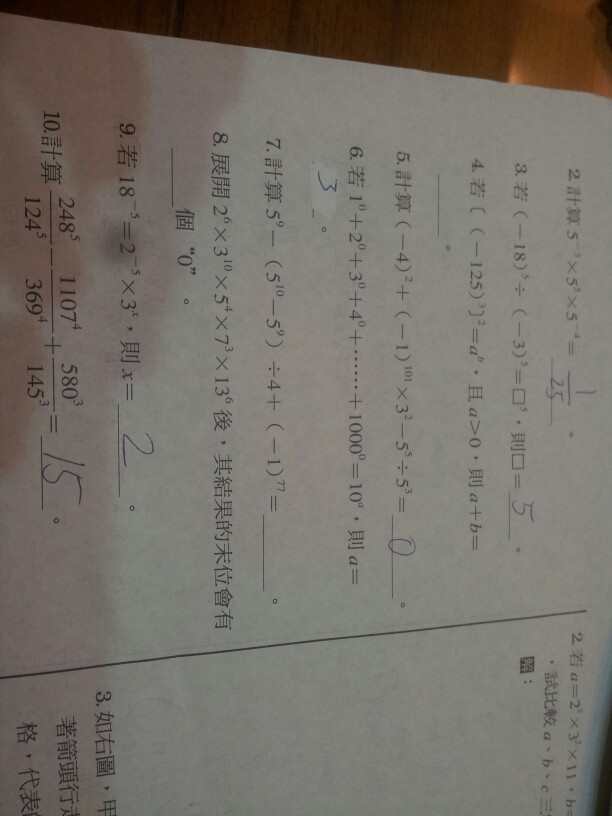 2.計算 5⁻³×5⁵×5⁻⁴= 1/25 。
3.若(-18)⁵÷(-3)⁵=□⁵,則□= 5 。
4.若〔(-125)³〕²=aᵇ,且 a>0,則 a+b=
____。
5.計算(-4)²+(-1)¹⁰¹×3²-5⁵÷5³= 0 。
6.若 1⁰+2⁰+3⁰+4⁰+……+1000⁰=10ᵃ,則 a=
3 。
7.計算 5⁹-(5¹⁰-5⁹)÷4+(-1)⁷⁷=____。
8.展開 2⁶×3¹⁰×5⁴×7³×13⁶後,其結果的末位會有
____個“0”。
9.若 18⁻⁵=2⁻⁵×3ˣ,則 x= 2 。
10.計算 248⁵/124⁵-1107⁴/369⁴+580³/145³= 15 。
2.若 a=2³×3²×11,b=
,試比較 a、b、c 三
解:
3.如右圖,甲
著箭頭行走
格,代表